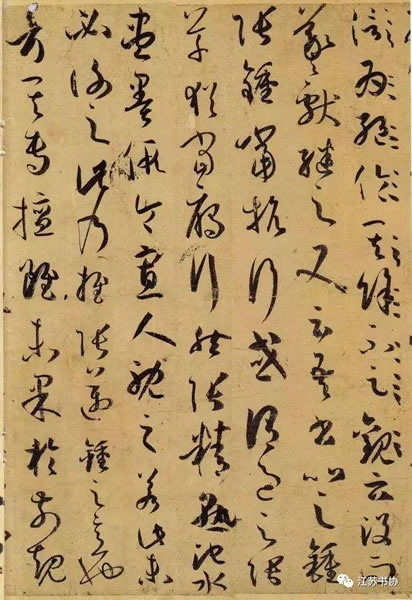 為絕倫其餘不足觀云沒而
羲獻繼之又云吾書比之鍾
張鍾當抗行或謂過之張
草猶當鴈行然張精熟池水
盡墨假令寡人耽之若此未
必謝之此乃推張邁鍾之意也
考其專擅雖未果於前規
江苏书协